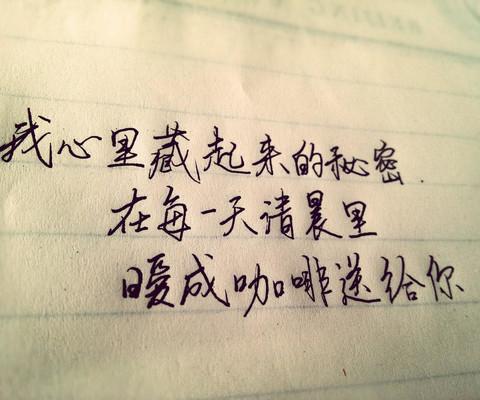 BEIJING
我心里藏起来的秘密.
在每一天清晨里
暖成咖啡送给你